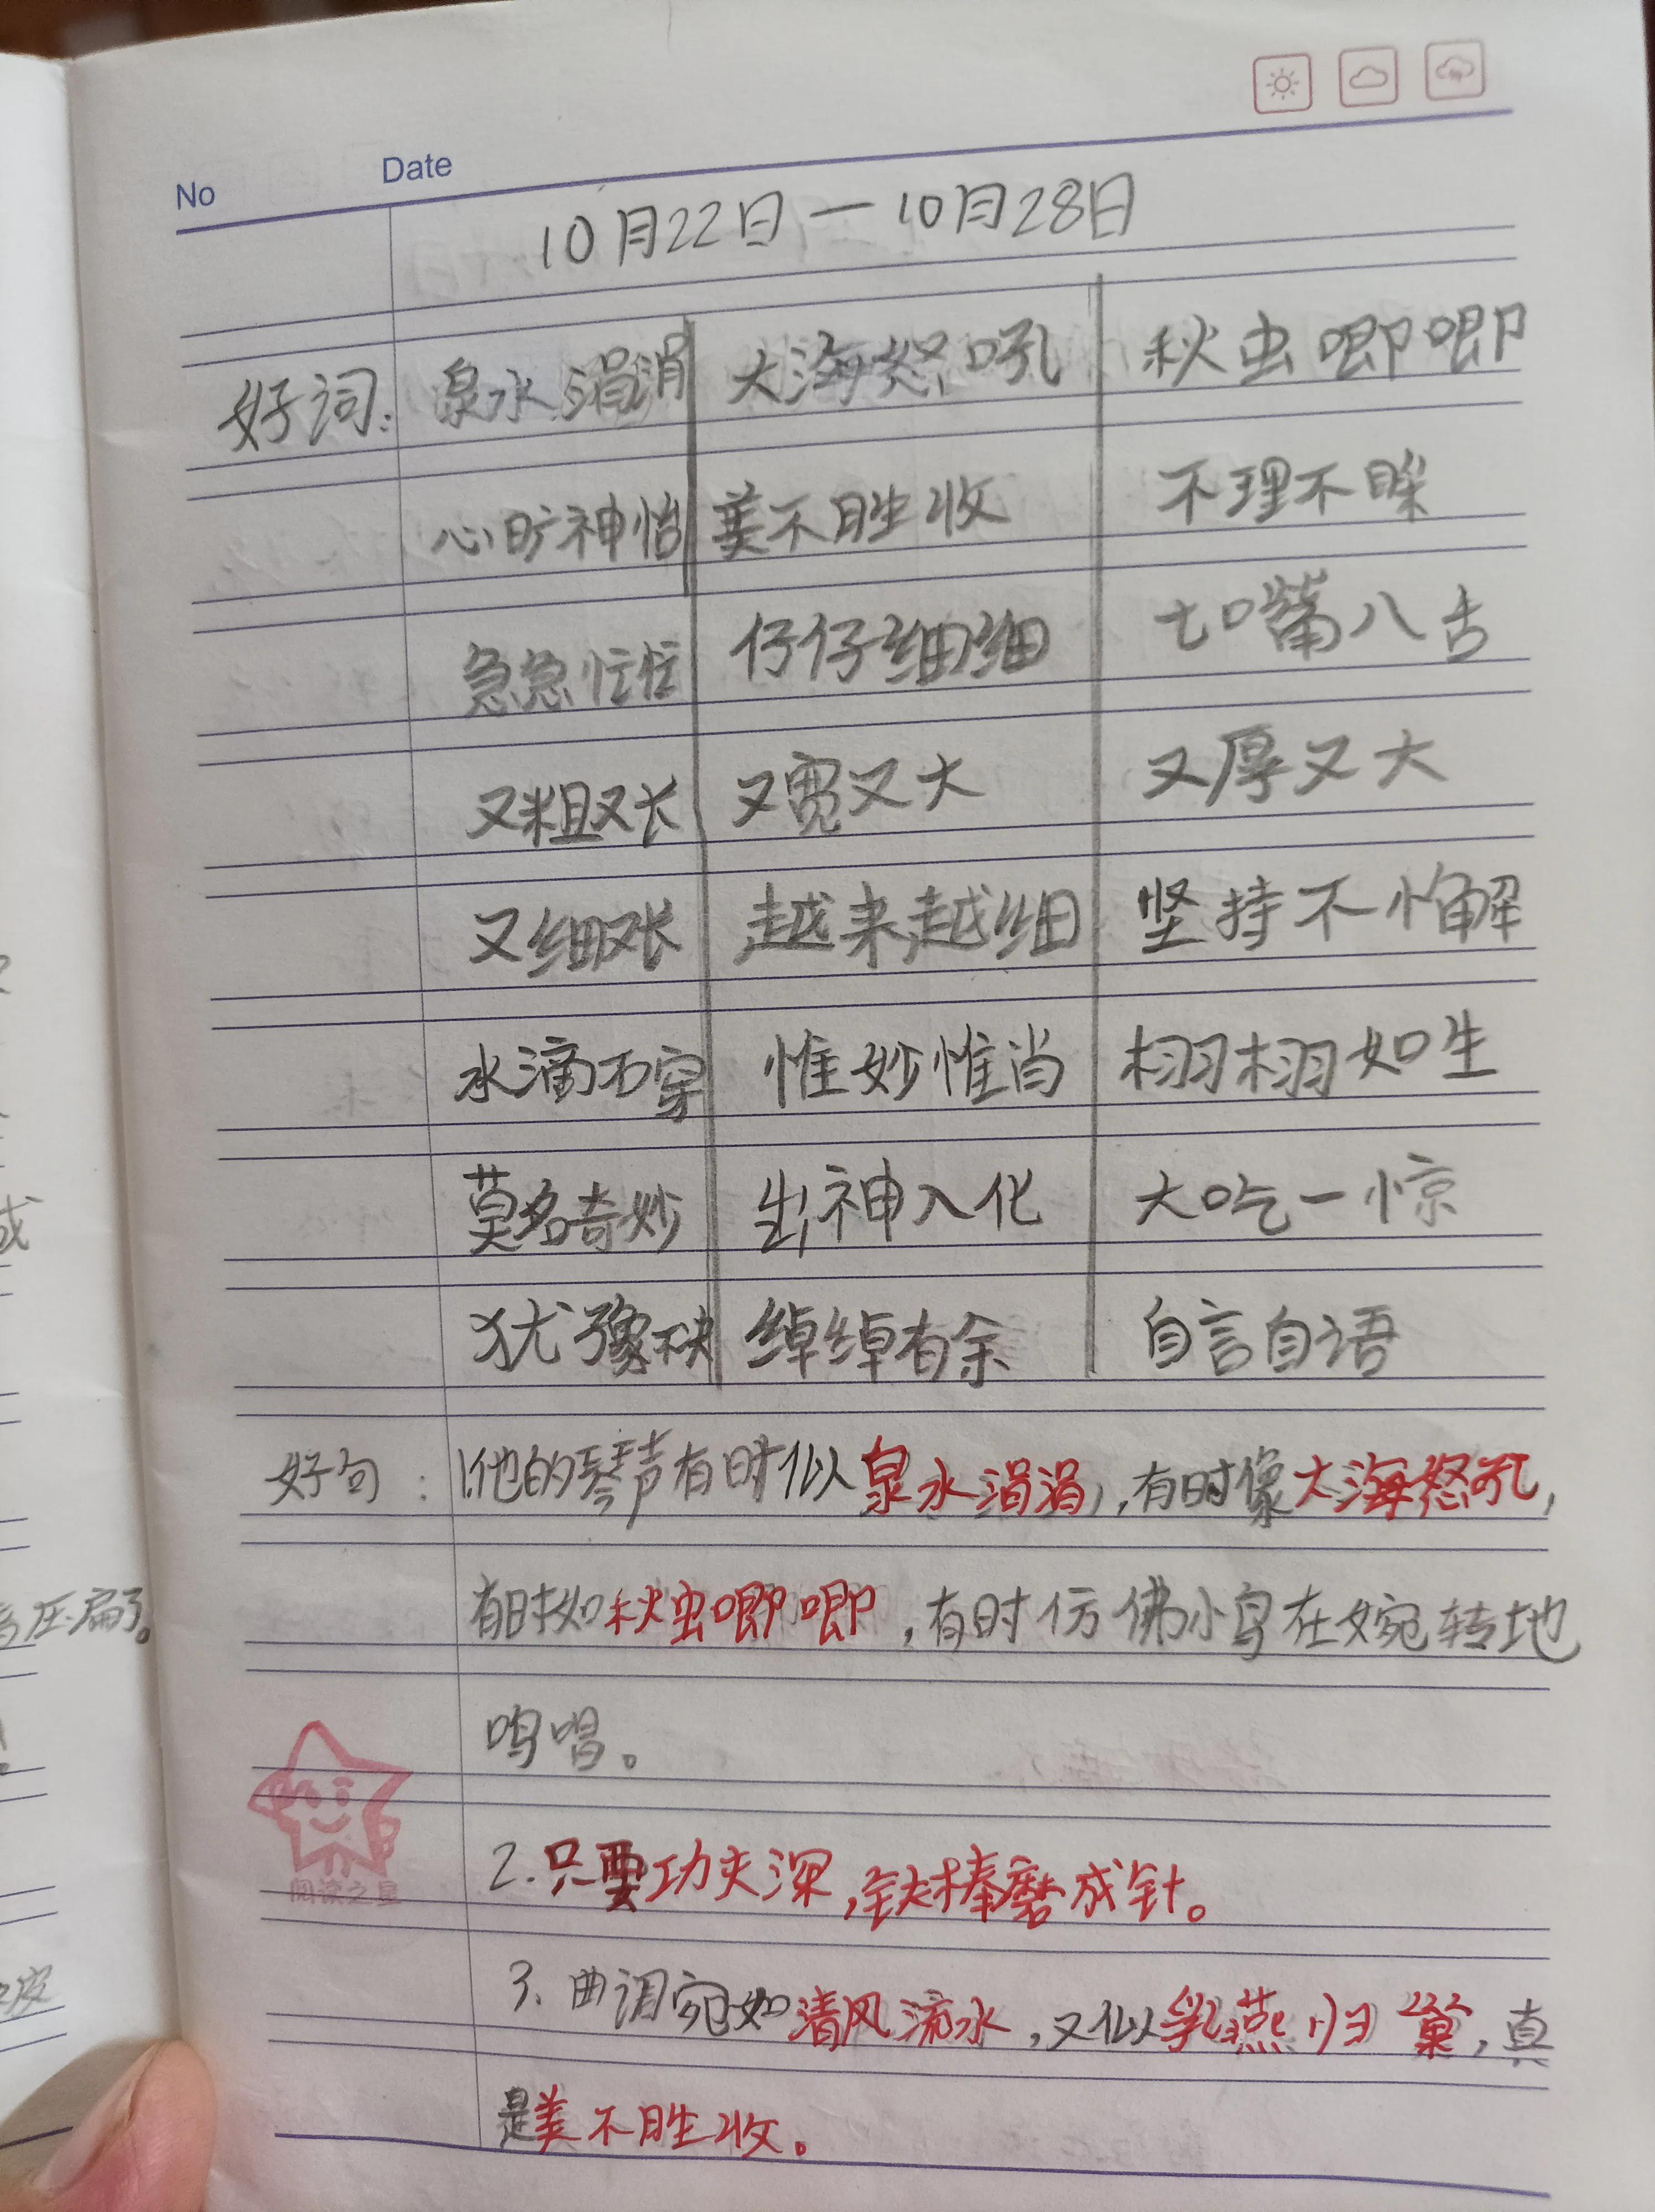 No Date
10月22日一10月28日
好词: 泉水涓涓 大海怒吼 秋虫唧唧
心旷神怡 美不胜收 不理不睬
急急忙忙 仔仔细细 七嘴八舌
又粗又长 又宽又大 又厚又大
又细又长 越来越细 坚持不懈
水滴石穿 惟妙惟肖 栩栩如生
莫名奇妙 出神入化 大吃一惊
犹豫不决 绰绰有余 自言自语
好句: 1.他的琴声有时似泉水涓涓,有时像大海怒吼,
有时如秋虫唧唧,有时仿佛小鸟在婉转地
鸣唱。
2.只要功夫深,铁棒磨成针。
阅读之星
3.曲调宛如清风流水,又似乳燕归巢,真
是美不胜收。
压扁了。
或
皮